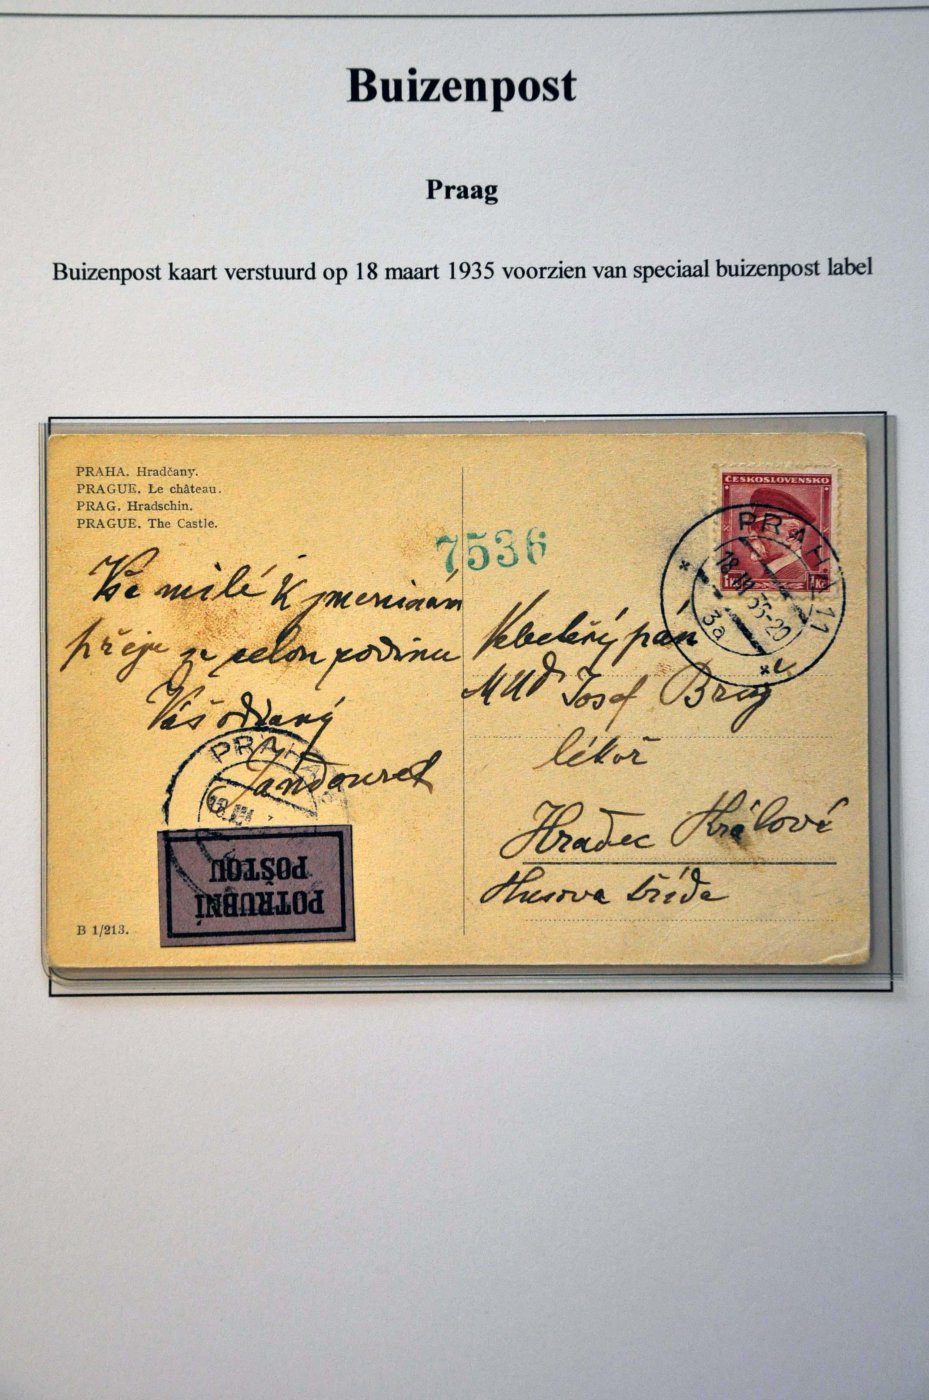 Buizenpost
Praag
Buizenpost kaart verstuurd op 18 maart 1935 voorzien van speciaal buizenpost label
PRAHA. Hradčany.
PRAGUE. Le château.
PRAG. Hradschin.
PRAGUE. The Castle.
ČESKOSLOVENSKO
7536
PRAHA 11
18.III.35-20
3a
1 Kč
Vše milé k jmeninám
přeje se celou rodinu
Váš oddaný
Velectěný pan
MUD Josef
lékař
Hradec Králové
Husova třída
PRAHA
18.III
POTRUBNÍ
POŠTOU
B 1/213.